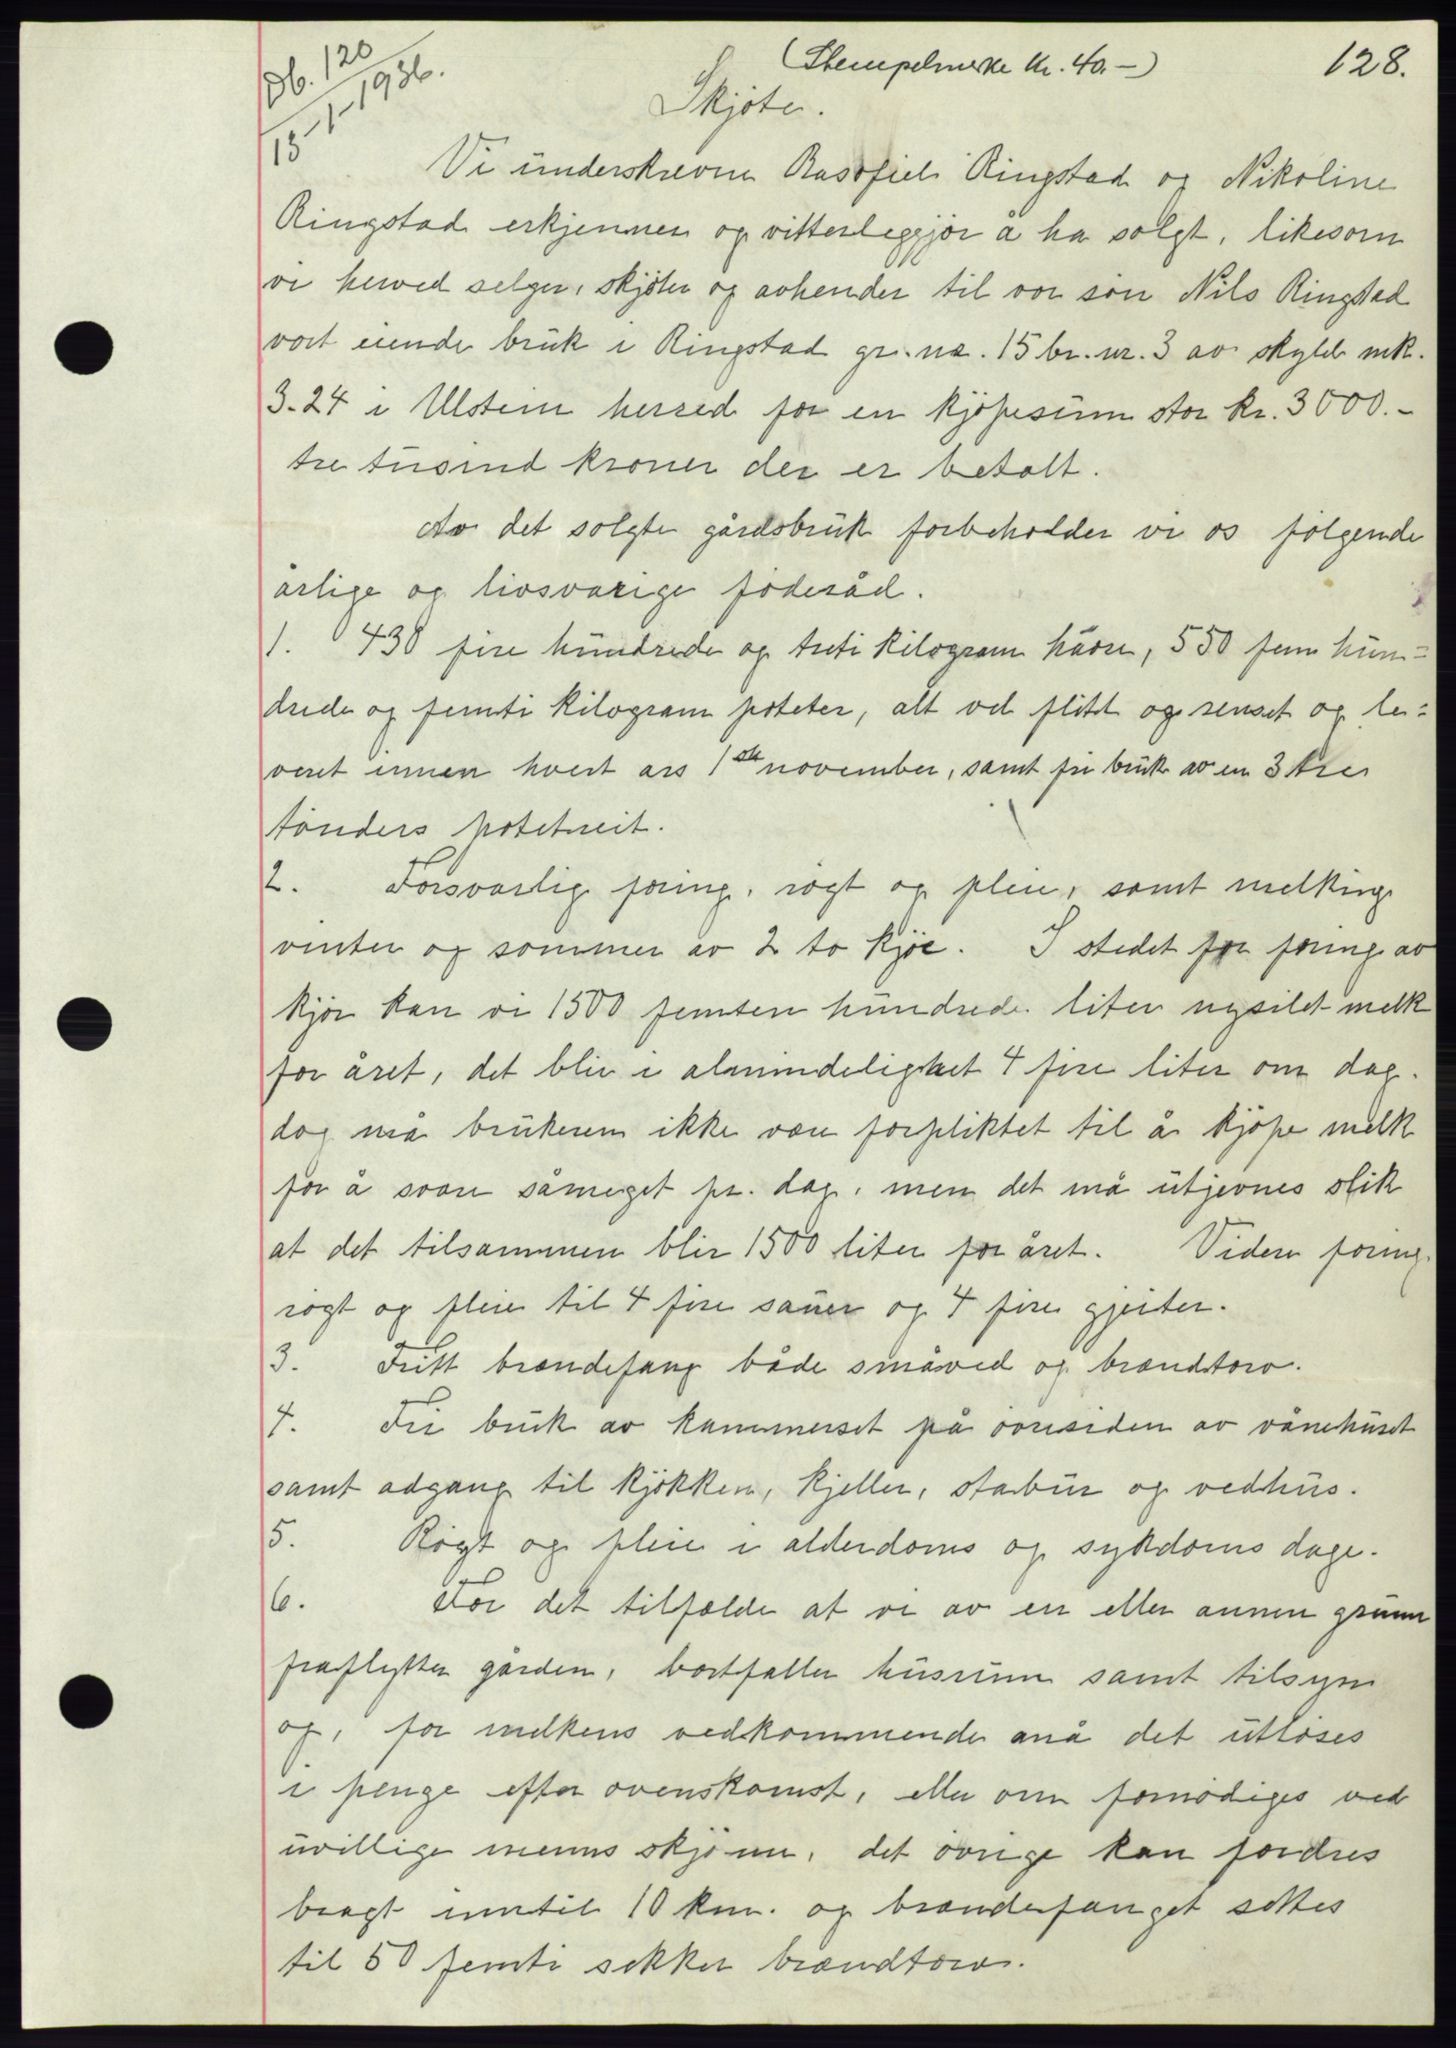 Db. 120
13-1-1936.
(Stempelmerke kr. 40.-)
128.
Skjöte.
Vi underskrevne Rasofiel Ringstad og Nikoline
Ringstad erkjenner og vitterleggjör å ha solgt, likesom
vi herved selger, skjöter og avhender til vor sön Nils Ringstad
vort eiende bruk i Ringstad gr. nr. 15 br. nr. 3 av skyld mk.
3.24 i Ulstein herred for en kjöpesum stor kr. 3000.-
tre tusind kroner der er betalt.
Av det solgte gårdsbruk forbeholder vi os fölgende
årlige og livsvarige föderåd.
1. 430 fire hundrede og treti kilogram havre, 550 fem hun=
drede og femti kilogram poteter, alt vel flidd og renset og le=
veret innen hvert års 1ste november, samt fri bruk av en 3 tres
tönders potetreit.
2. Forsvarlig foring, rögt og pleie, samt melking
vinter og sommer av 2 to kjör. I stedet for foring av
kjör kan vi 1500 femten hundrede liter nysilet melk
for året, det blir i almindelighet 4 fire liter om dag.
dog må brukeren ikke være forpliktet til å kjöpe melk
for å svare såmeget pr. dag, men det må utjevnes slik
at det tilsammen blir 1500 liter for året. Videre foring.
rögt og pleie til 4 fire sauer og 4 fire gjeiter.
3. Fritt brændefang både småved og brændtorv.
4. Fri bruk av kammerset på övresiden av vånehuset
samt adgang til kjökken, kjeller, stabur og vedhus.
5. Rögt og pleie i alderdoms og sykdoms dage.
6. For det tilfælde at vi av en eller annen grunn
fraflytter gården, bortfaller husrum samt tilsyn
og, for melkens vedkommende må det utlöses
i penge efter ovenskomst, eller om fornödiges ved
uvillige menns skjönn, det övrige kan fordres
bragt inntil 10 km. og brændefanget settes
til 50 femti sekker brændtorv.